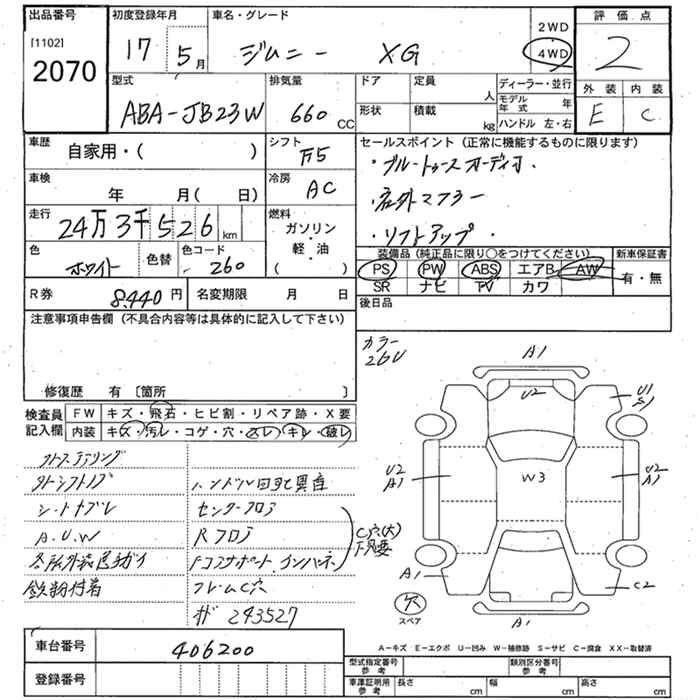 出品番号
[1102]
2070
初度登録年月
17 5月
車名・グレード
ジムニー XG
2WD
4WD
評価点
2
外装 内装
E C
型式
ABA-JB23W
排気量
660 CC
ドア
形状
定員 人
積載 kg
ディーラー・並行
モデル年式 年
ハンドル 左・右
車歴
自家用・( )
シフト
F5
セールスポイント (正常に機能するものに限ります)
・ブルートゥースオーディオ.
・社外マフラー
・リフトアップ.
車検
年 月( 日)
冷房
AC
走行
24万3千526km
燃料
ガソリン
・
軽・油
( )
色
ホワイト
色替
色コード
-260
装備品 (純正品に限り〇をつけてください)
PS PW ABS エアB AW
SR ナビ TV カワ
新車保証書
有・無
R券
8.440円
名変期限 月 日
後日品
注意事項申告欄 (不具合内容等は具体的に記入して下さい)
修復歴 有 〔箇所 〕
カラー
26U
検査員記入欄
FW キズ・飛石・ヒビ割・リペア跡・X要
内装 キズ・汚レ・コゲ・穴・スレ・キレ・破レ
外ステアリング
外シフトノブ
シートナブレ
A.U.W
各所外装色チガイ
鉄粉付着
ハンドル回した異音
センターフロア
Rフロア
Fコアサポート.インパネ
C穴(大)
下見要
フレームC穴
243527
A1
U2
U1
S1
U2
A1
W3
U2
A1
A1
C2
A1
穴
スペア
A-キズ E-エクボ U-凹み W-補修跡 S-サビ C-腐食 XX-取替済
車台番号
406200
登録番号
型式指定番号 参考
類別区分番号 参考
車庫証明用 参考
長さ cm
幅 cm
高さ cm